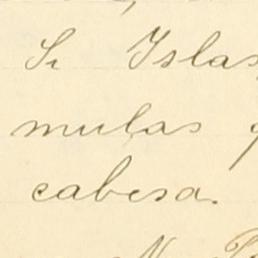 Sr Islas
mulas
cabesa.